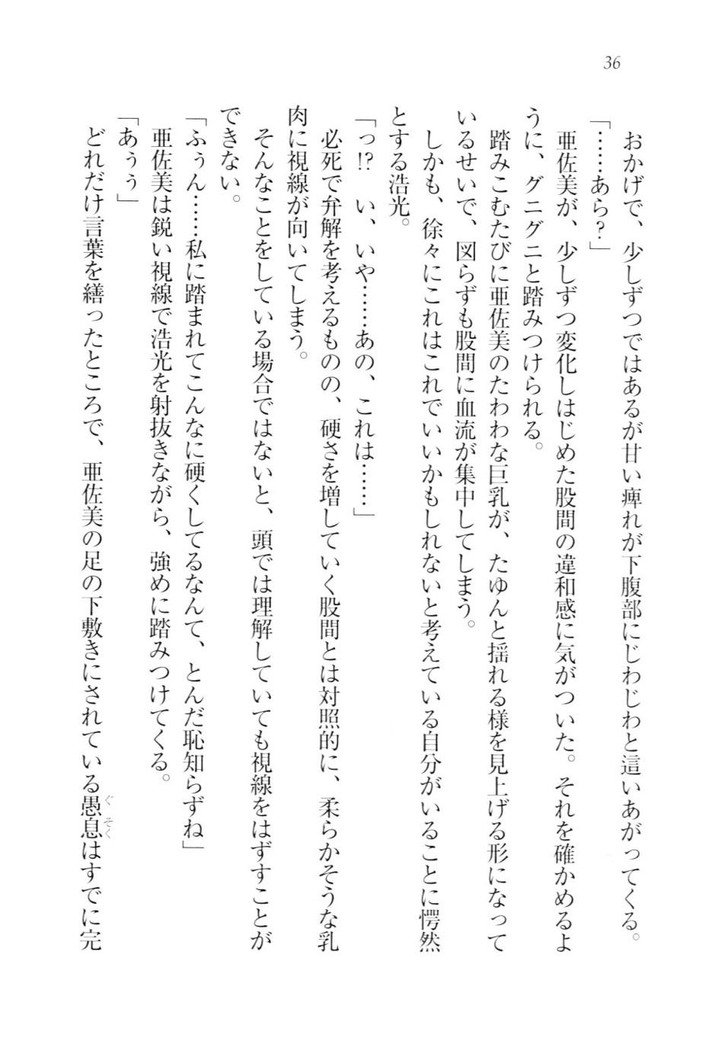 36
おかげで、少しずつではあるが甘い痺れが下腹部にじわじわと這いあがってくる。
「……あら?」
亜佐美が、少しずつ変化しはじめた股間の違和感に気がついた。それを確かめるよ
うに、グニグニと踏みつけられる。
踏みこむたびに亜佐美のたわわな巨乳が、たゆんと揺れる様を見上げる形になって
いるせいで、図らずも股間に血流が集中してしまう。
しかも、徐々にこれはこれでいいかもしれないと考えている自分がいることに愕然
とする浩光。
「っ!? い、いや……あの、これは……」
必死で弁解を考えるものの、硬さを増していく股間とは対照的に、柔らかそうな乳
肉に視線が向いてしまう。
そんなことをしている場合ではないと、頭では理解していても視線をはずすことが
できない。
「ふぅん……私に踏まれてこんなに硬くしてるなんて、とんだ恥知らずね」
亜佐美は鋭い視線で浩光を射抜きながら、強めに踏みつけてくる。
「あぅぅ」
どれだけ言葉を繕ったところで、亜佐美の足の下敷きにされている愚息はすでに完
ぐそく